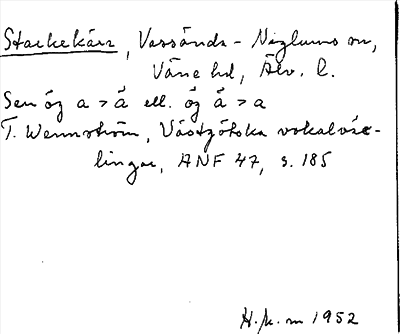 Starkekärr, Vassända-Naglums sn,
Väne hd, Älv. l.
Sen óg a > å ell. óg å > a
T. Wennström, Västgötska vokalväx-
lingar, ANF 47, s. 185
H. K. m 1952